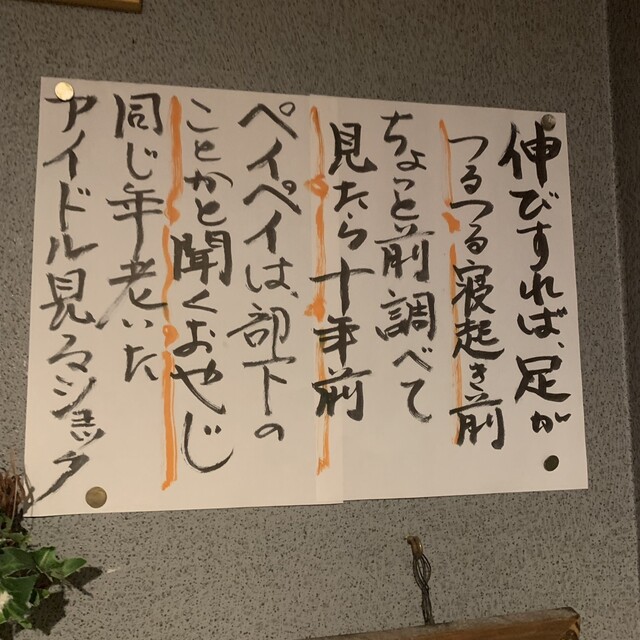 伸びすれば、足が
つるつる寝起き前
ちょっと前調べて
見たら十年前
ペイペイは、部下の
ことかと聞くおやじ
同じ年老いた
アイドル見るショック